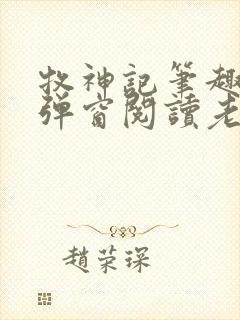 牧神記筆趣
彈窗閱讀老
趙荣琛